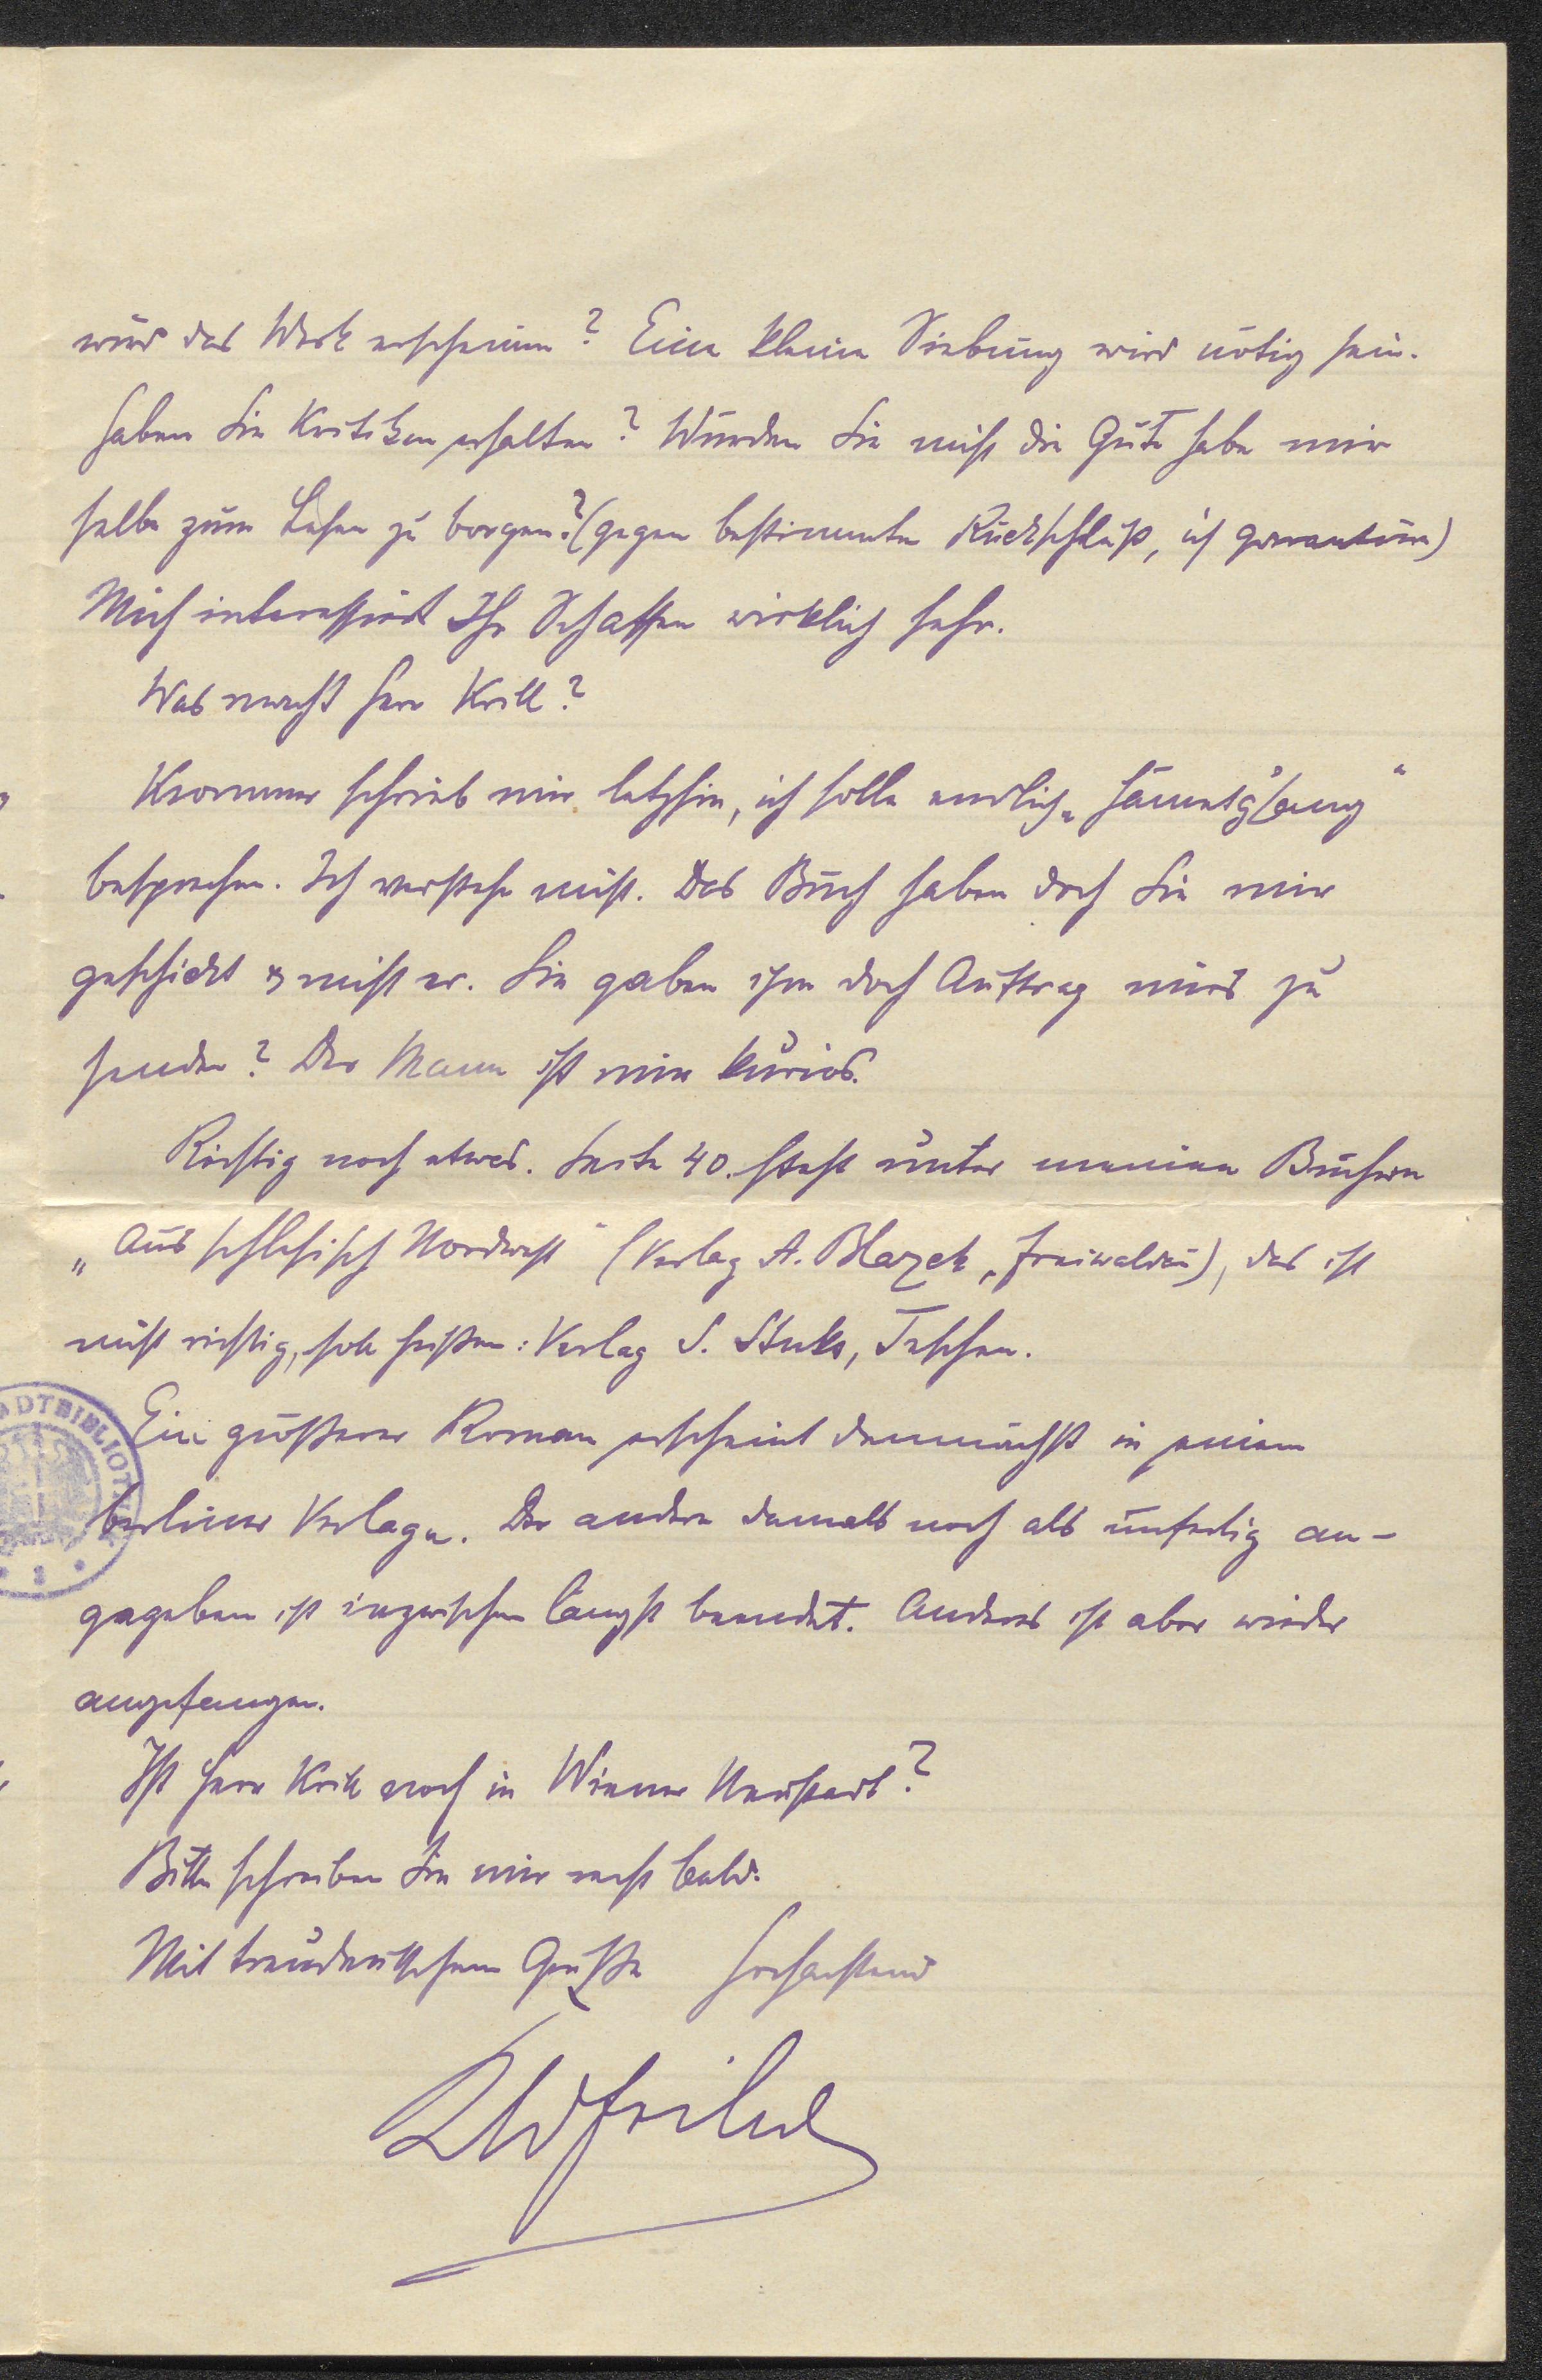 wird das Werk erscheinen? Eine kleine Siebung wird nötig sein.
Haben Sie Kritiken erhalten? Würden Sie nicht die Güte habe mir
selbe zum Lesen zu borgen? (gegen bestimmten Rückschluß, ich garantiere)
Mich interessiert Ihr Schaffen wirklich sehr.
Was macht Herr Krill?
Krommer schrieb mir letzhin, ich solle endlich „
besprechen. Ich verstehe nicht. Das Buch haben doch Sie mir
geschickt & nicht er. Sie gaben ihm doch Auftrag mirs zu
senden? Der Mann ist mir kurios.
Richtig noch etwas. Seite 40. steht unter meinen Büchern
„Aus schlesisch Nordwest" (Verlag A. Blazek, Freiwaldau), das ist
nicht richtig, soll heißen: Verlag S. Stuks, Teschen.
Ein größerer Roman erscheint demnächst in einem
berliner Verlage. Der andere damals noch als unfertig an-
gegeben ist inzwischen längst beendet. Anderes ist aber wieder
angefangen.
Ist Herr Krill noch in Wiener Neustadt?
Bitte schreiben Sie mir recht bald.
Mit treudeutschem Gruße Hochachtend